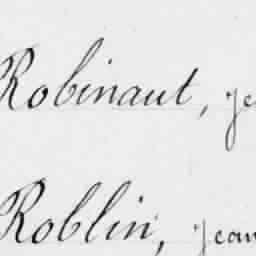 Robinaut, je
Roblin, jean